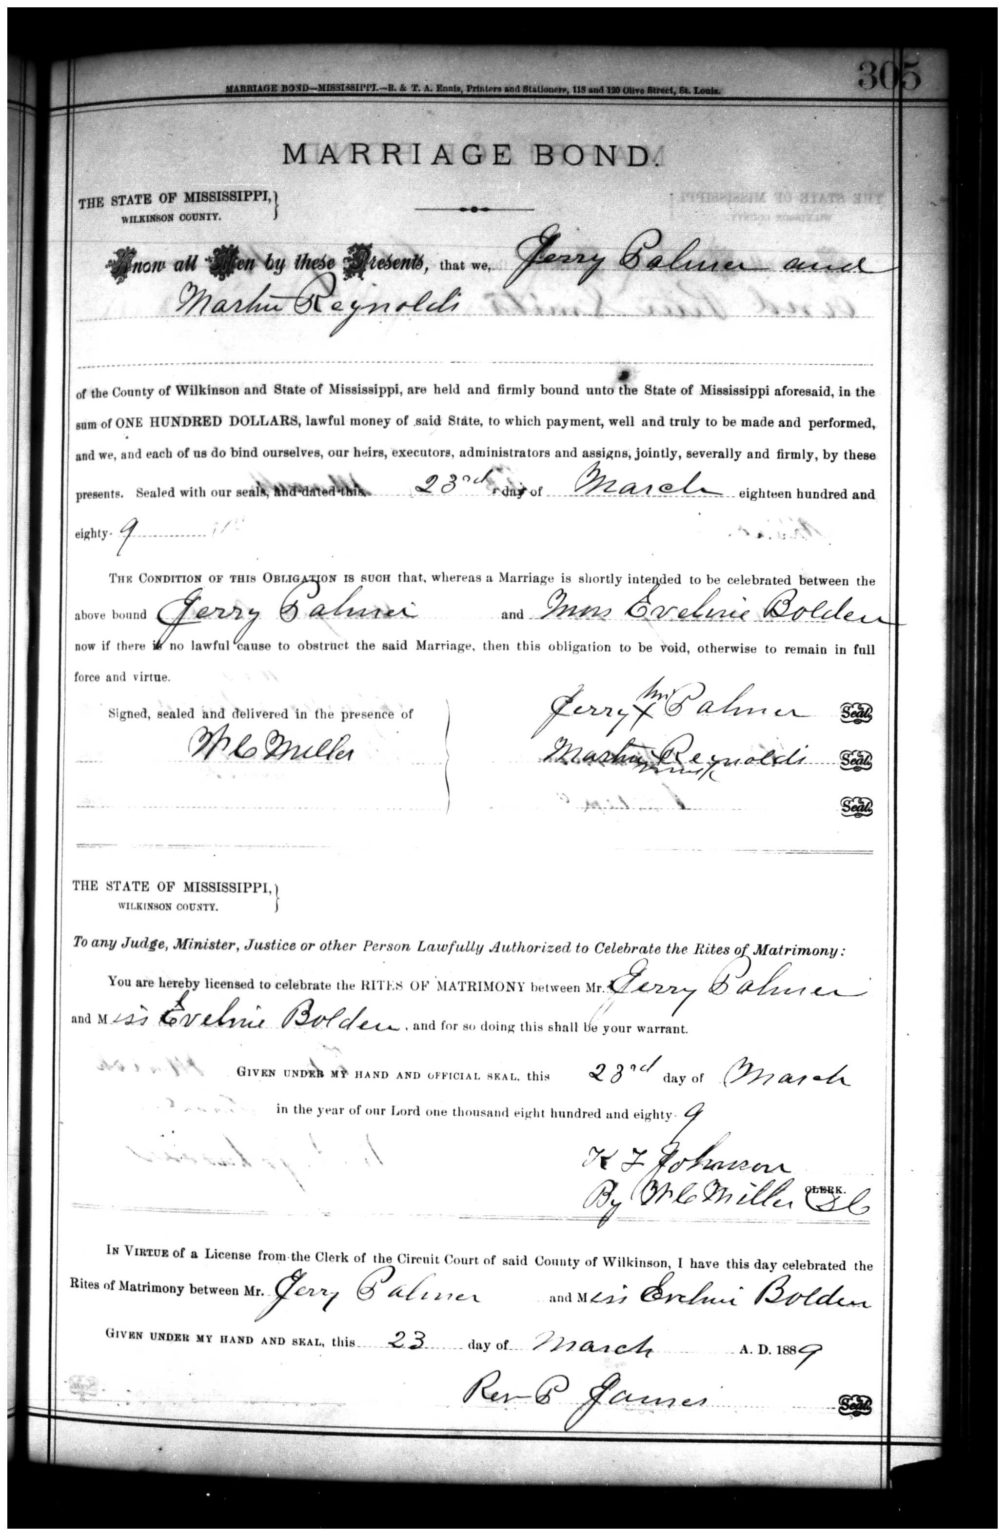 305
MARRIAGE BOND—MISSISSIPPI.—R. & T. A. Ennis, Printers and Stationers, 118 and 120 Olive Street, St. Louis.
MARRIAGE BOND.
THE STATE OF MISSISSIPPI,}
WILKINSON COUNTY.
Know all Men by these Presents, that we, Jerry Palmer and
Martin Reynolds
of the County of Wilkinson and State of Mississippi, are held and firmly bound unto the State of Mississippi aforesaid, in the
sum of ONE HUNDRED DOLLARS, lawful money of said State, to which payment, well and truly to be made and performed,
and we, and each of us do bind ourselves, our heirs, executors, administrators and assigns, jointly, severally and firmly, by these
presents. Sealed with our seals, and dated this 23rd day of March eighteen hundred and
eighty-9
THE CONDITION OF THIS OBLIGATION IS SUCH that, whereas a Marriage is shortly intended to be celebrated between the
above bound Jerry Palmer and Miss Eveline Bolden
now if there is no lawful cause to obstruct the said Marriage, then this obligation to be void, otherwise to remain in full
force and virtue.
Signed, sealed and delivered in the presence of
Jerry his X Palmer Seal
W C Miller
Martin Reynolds Seal
mark
Seal
THE STATE OF MISSISSIPPI,}
WILKINSON COUNTY.
To any Judge, Minister, Justice or other Person Lawfully Authorized to Celebrate the Rites of Matrimony:
You are hereby licensed to celebrate the RITES OF MATRIMONY between Mr. Jerry Palmer
and Miss Eveline Bolden, and for so doing this shall be your warrant.
GIVEN UNDER MY HAND AND OFFICIAL SEAL, this 23rd day of March
in the year of our Lord one thousand eight hundred and eighty-9
K F Johnson
CLERK.
By W C Miller DC
IN VIRTUE of a License from the Clerk of the Circuit Court of said County of Wilkinson, I have this day celebrated the
Rites of Matrimony between Mr. Jerry Palmer and Miss Eveline Bolden
GIVEN UNDER MY HAND AND SEAL, this 23 day of March A. D. 1889
Rev P James Seal